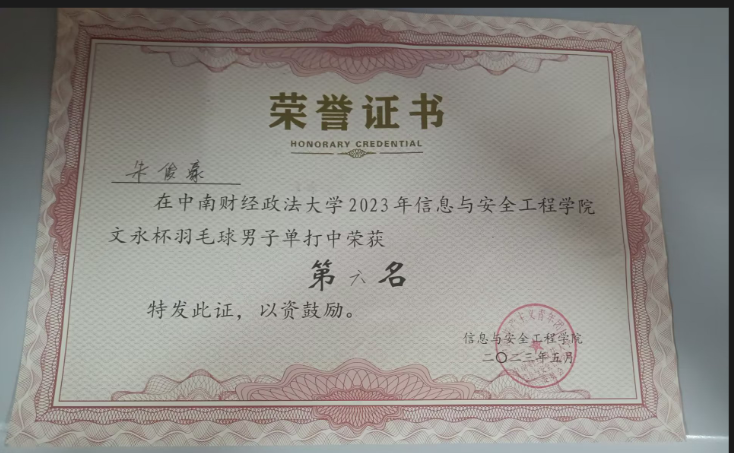 荣誉证书
HONORARY CREDENTIAL
朱俊
在中南财经政法大学2023年信息与安全工程学院
文永杯羽毛球男子单打中荣获
第六名
特发此证，以资鼓励。
信息与安全工程学院
二〇二三年五月